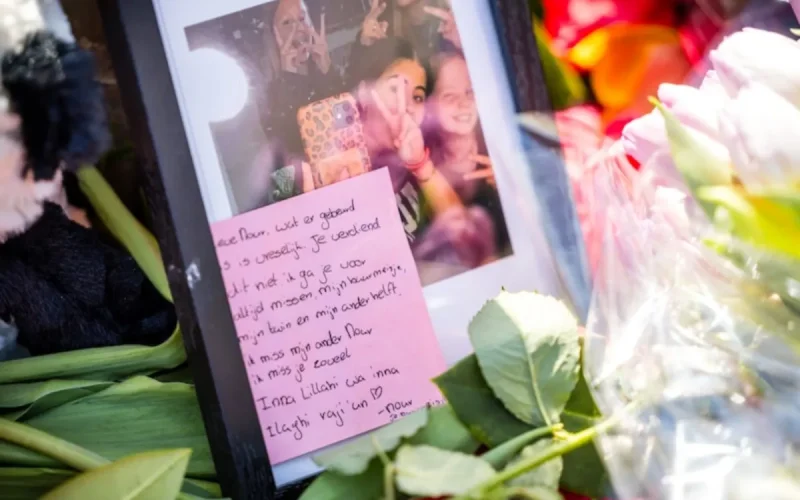 eve Nour, wat er gebeurd
s is vreselijk. Je verdiend
dit niet ik ga je voor
altijd missen, mijn buurmeisje,
mijn twin en mijn anderhelft.
ik miss mijn ander Nour
ik miss je zoveel
Inna Lillahi wa inna
Ilayhi raji'un ♡
-nour